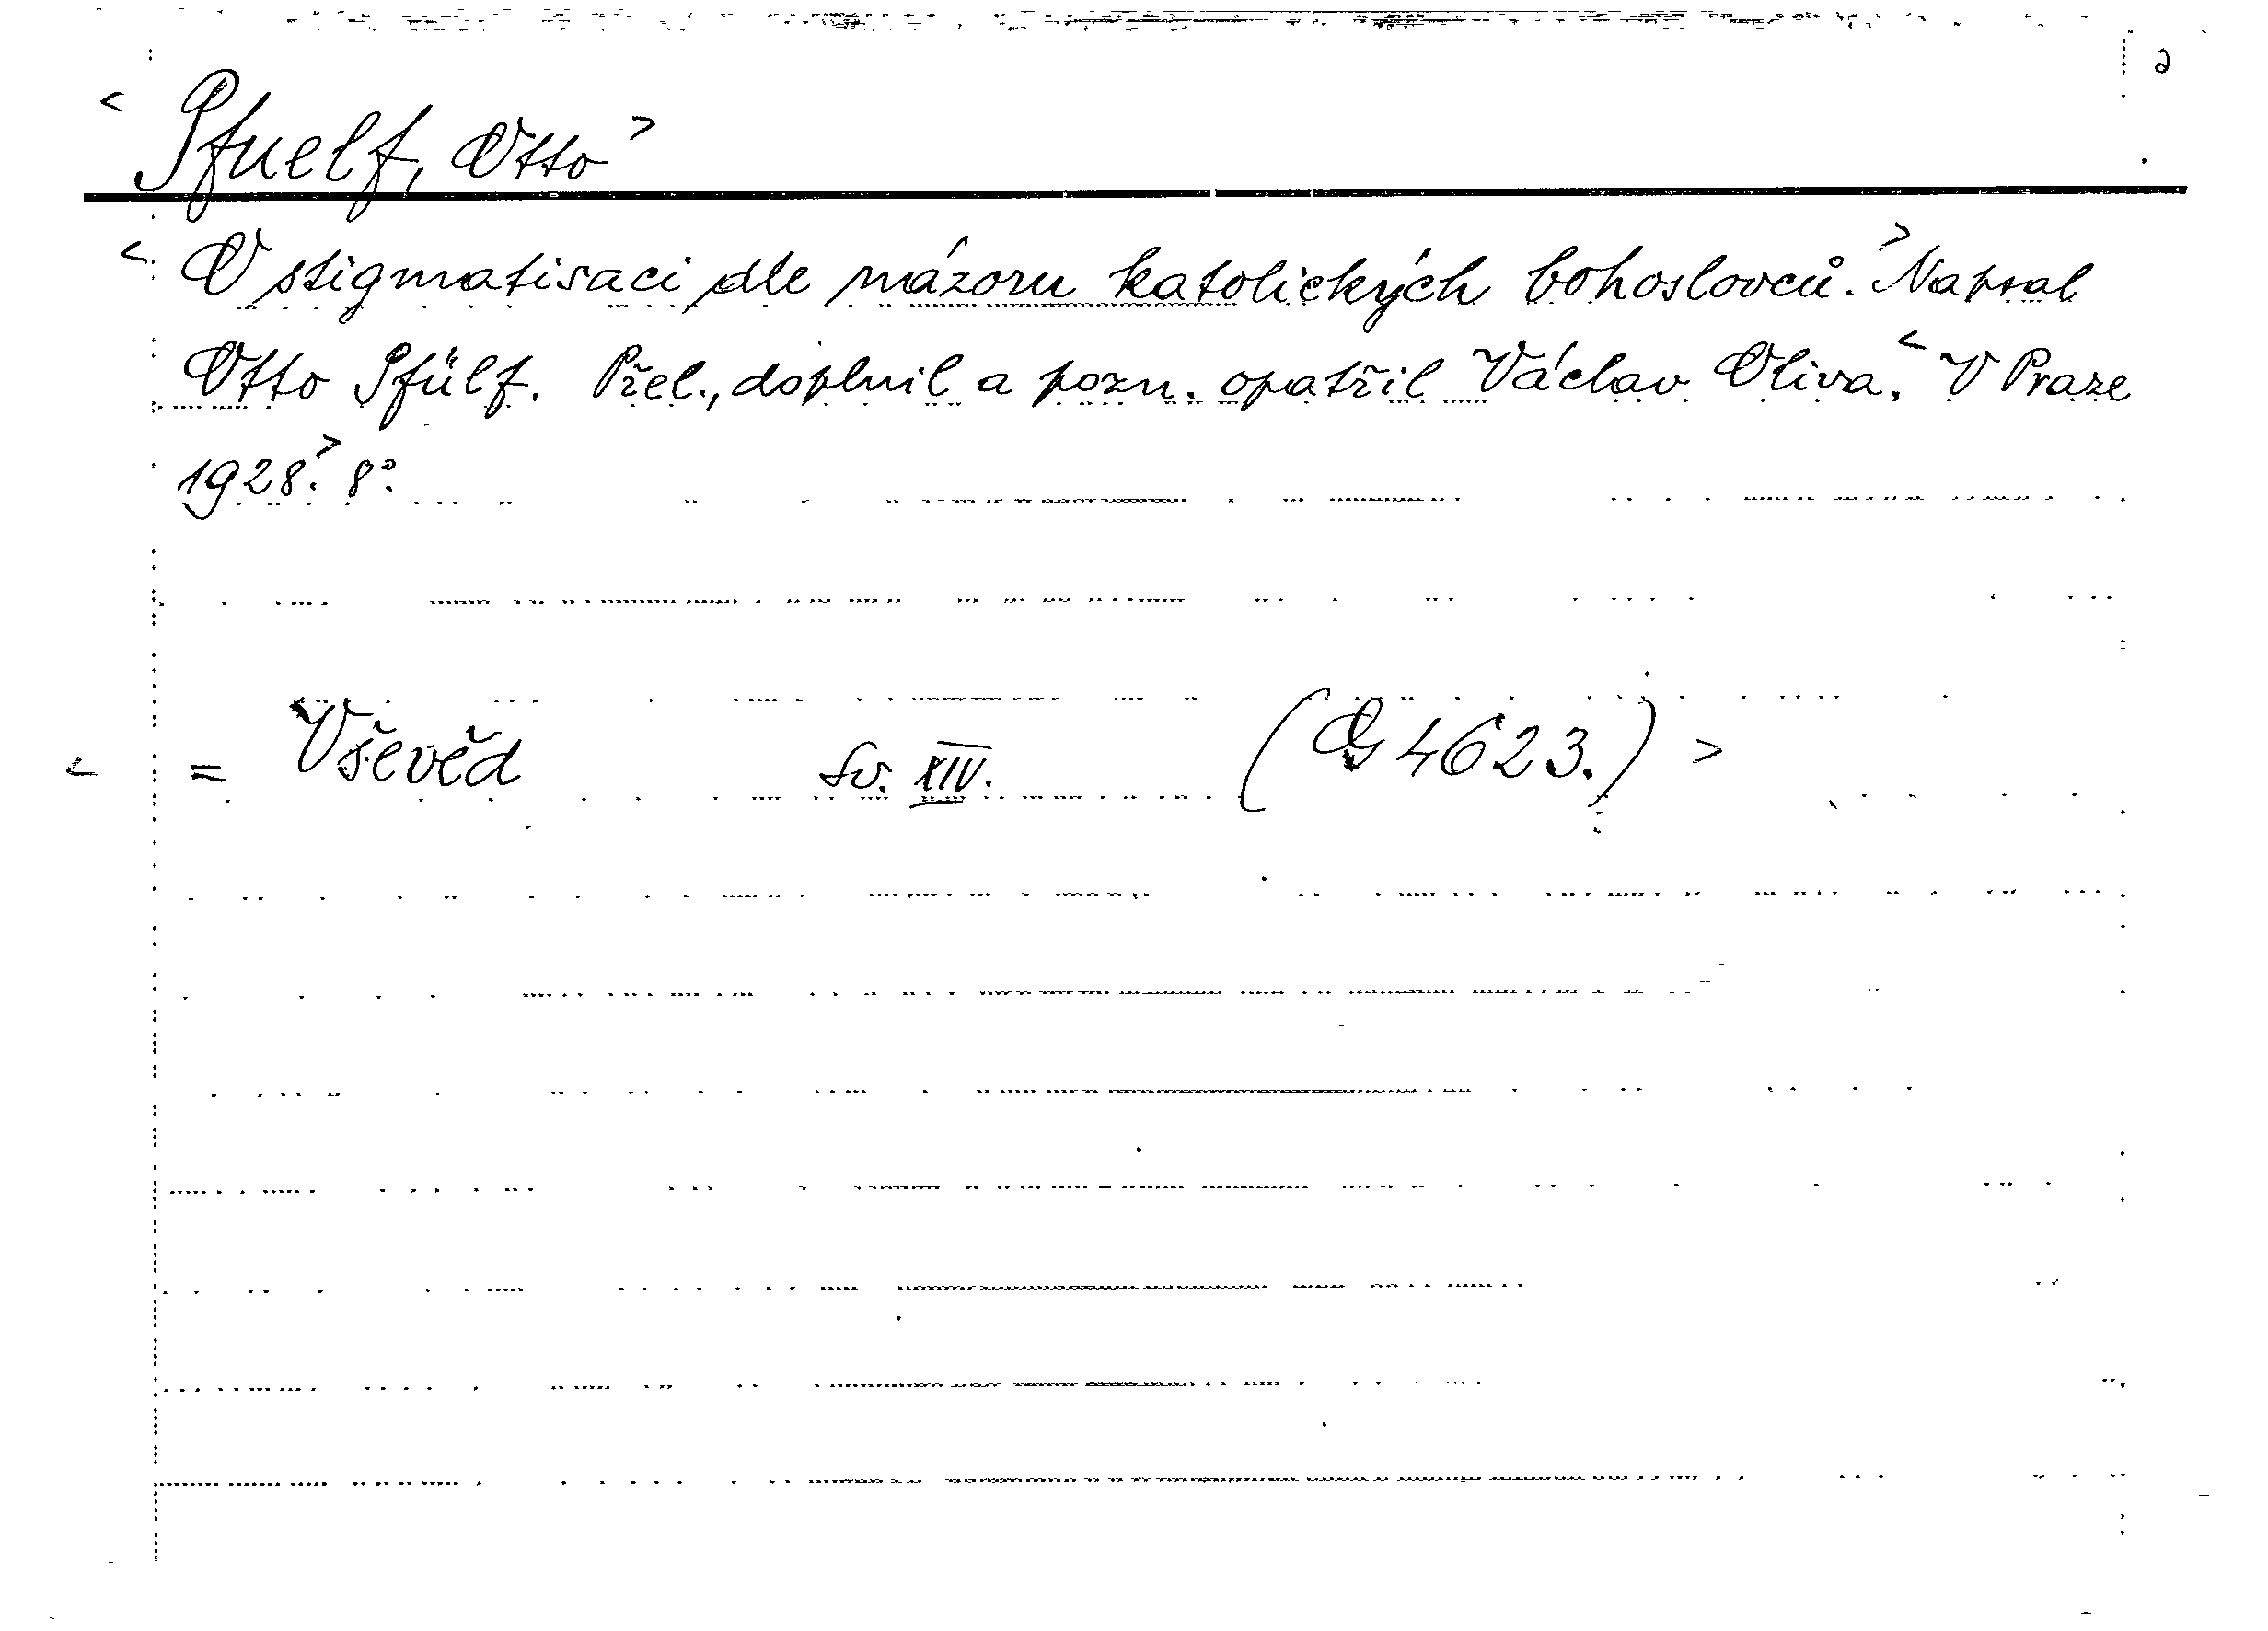 2
< Pfuelf, Otto >
< O stigmatisaci dle názoru katolických bohoslovců. > Napsal
Otto Pfülf. Přel., doplnil a pozn. opatřil Václav Oliva. < V Praze
1928. > 8°.
< = Vševěd sv. XIV. ( 4623.) >